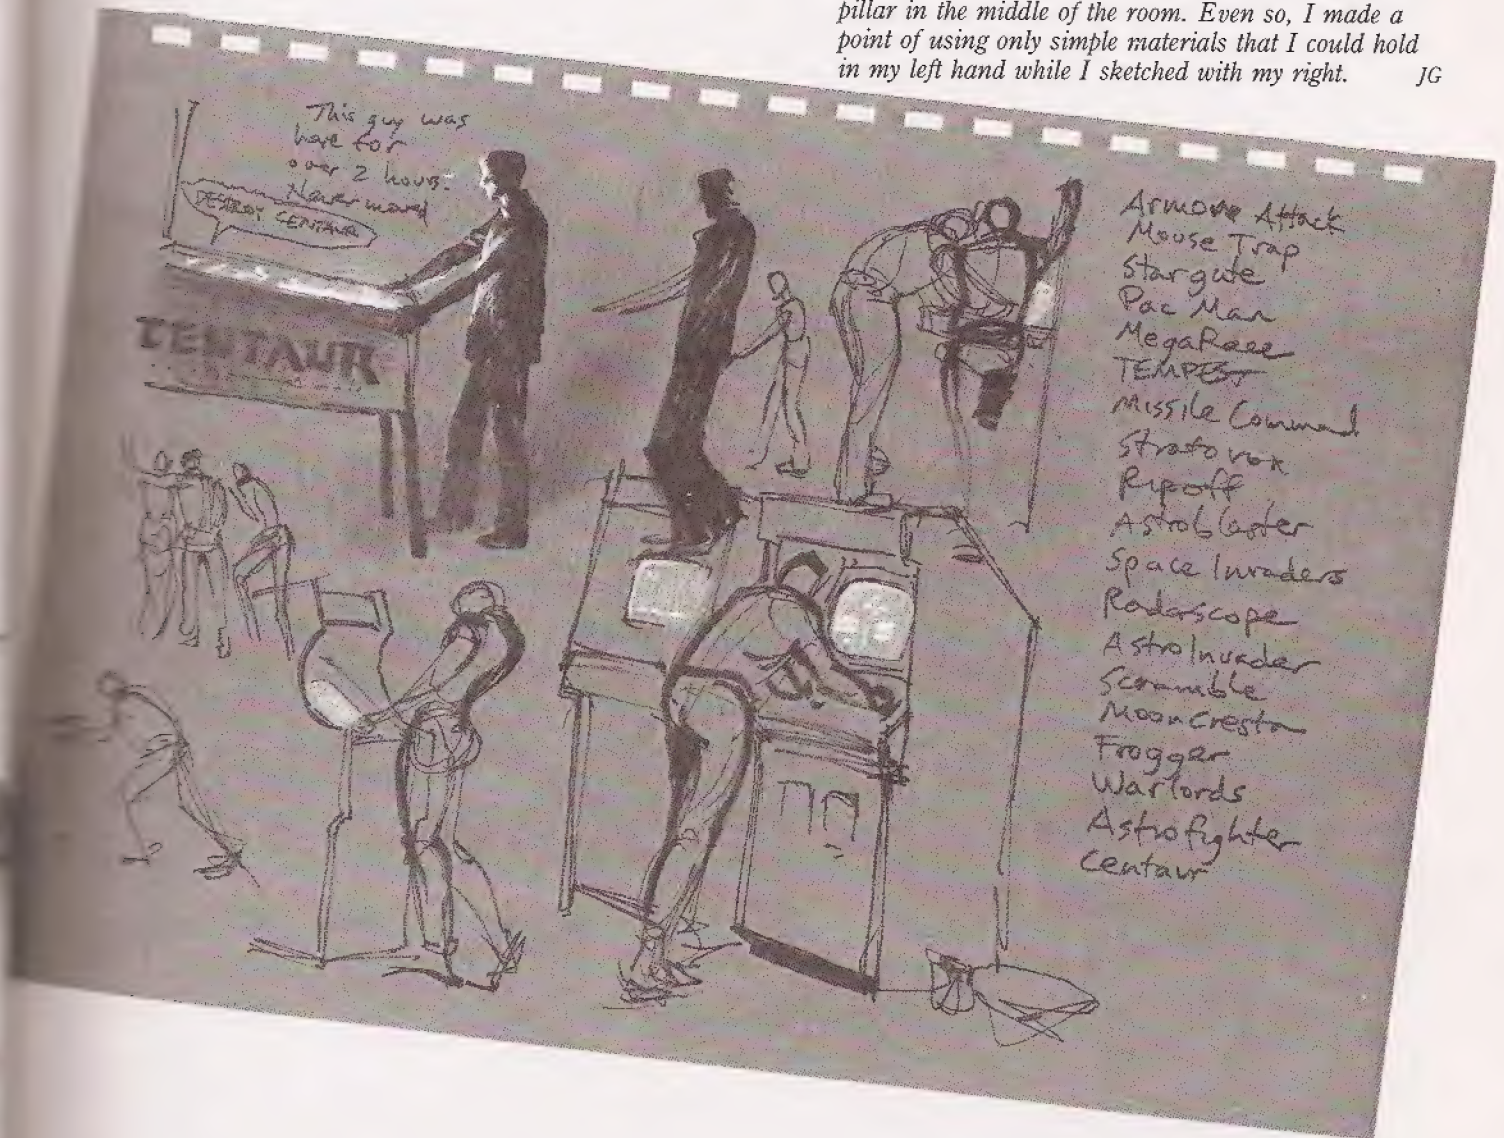 pillar in the middle of the room. Even so, I made a
point of using only simple materials that I could hold
in my left hand while I sketched with my right. JG
This guy was
here for
over 2 hours.
Never moved
DESTROY CENTAUR
CENTAUR
Armor Attack
Mouse Trap
Stargate
Pac Man
MegaRace
TEMPEST
Missile Command
Stratovox
Ripoff
Astroblaster
Space Invaders
Radarscope
AstroInvader
Scramble
MoonCresta
Frogger
Warlords
Astrofighter
Centaur